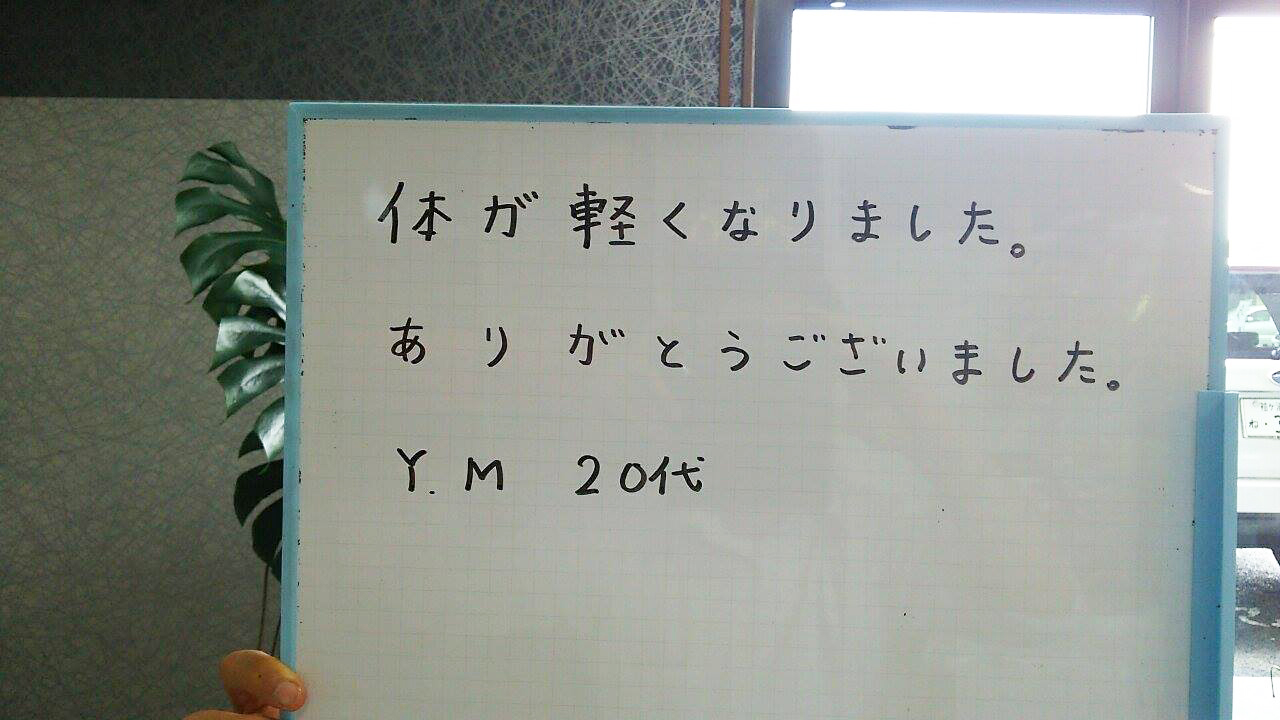 体が軽くなりました。
ありがとうございました。
Y.M 20代